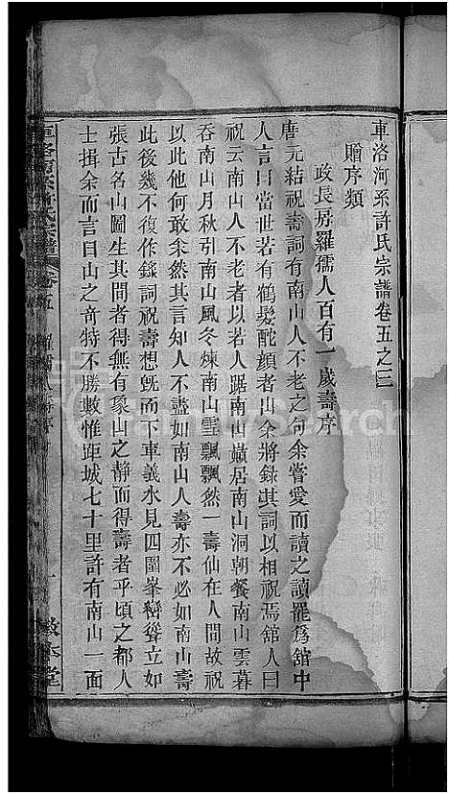 車洛河系許氏宗譜卷五之三
贈序類
政長房羅孺人百有一歲壽序
唐元結祝壽詞有南山人不老之句余嘗愛而讀之讀罷爲舘中
人言曰當世若有鶴髮酡顔者出余將錄其詞以相祝焉舘人曰
祝云南山人不老者以若人踞南山巔居南山洞朝餐南山雲暮
吞南山月秋引南山風冬煉南山雪飄飄然一壽仙在人間故祝
以此他何敢余然其言知人不盡如南山人壽亦不必如南山壽
此後幾不復作錄詞祝壽想旣而下車義水見四圍峯巒聳立如
張古名山圖生其間者得無有象山之静而得壽者乎頃之都人
士揖余而言曰山之奇特不勝數惟距城七十里許有南山一面
車洛河系許氏宗譜
卷五
敦本堂